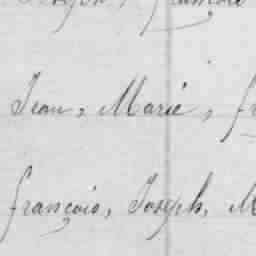 Jean, Marie, fr
françois, Joseph, M